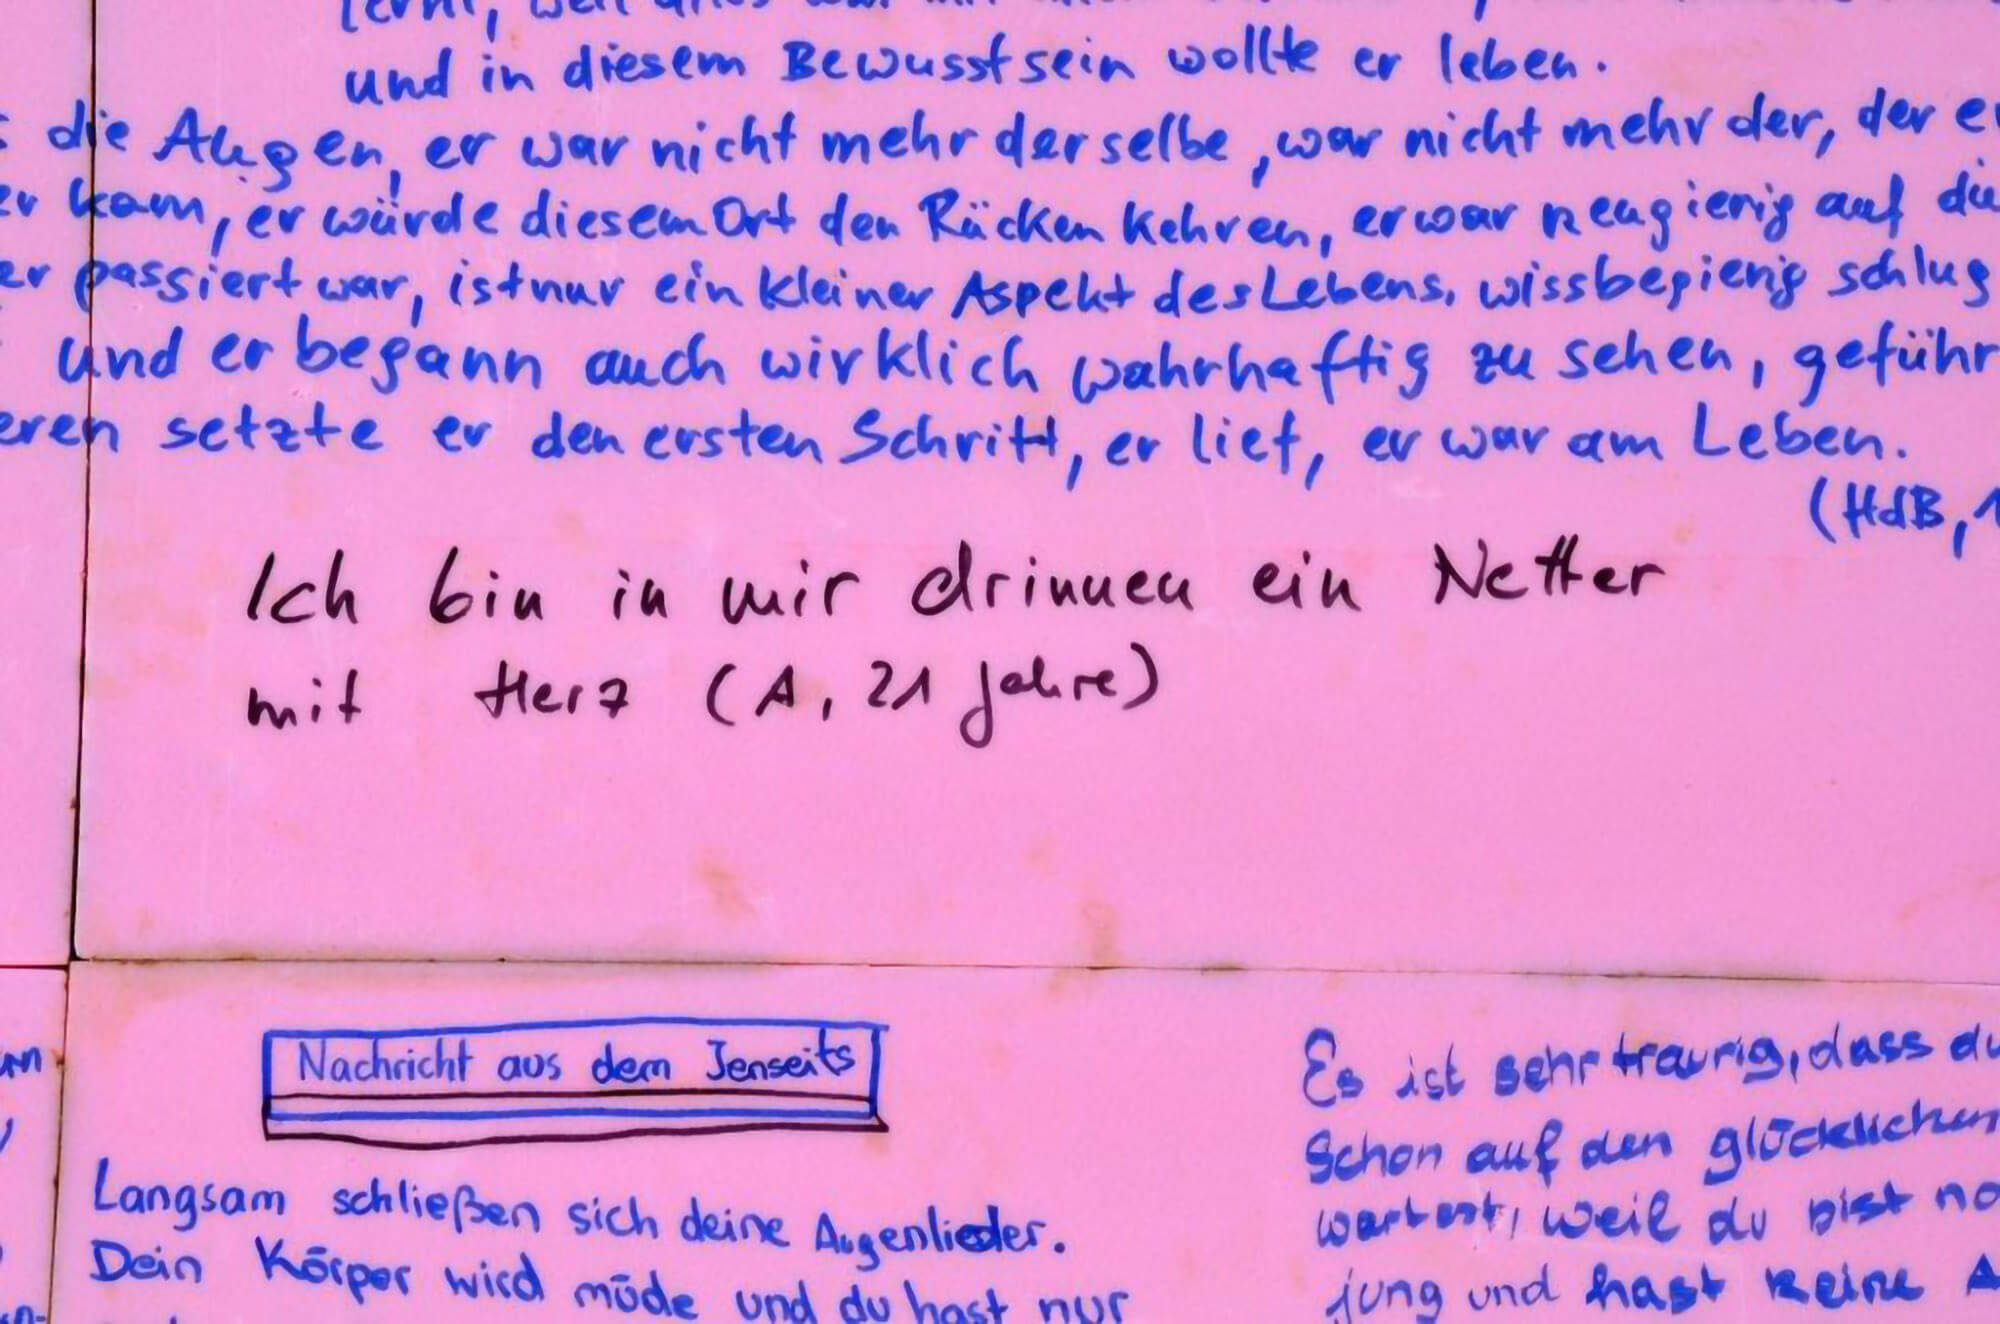 und in diesem Bewusstsein wollte er leben.
die Augen, er war nicht mehr derselbe, war nicht mehr der, der
kam, er würde diesem Ort den Rücken kehren, er war neugierig auf
passiert war, ist nur ein kleiner Aspekt des Lebens, wissbegierig schlug
und er begann auch wirklich wahrhaftig zu sehen, geführ
eren setzte er den ersten Schritt, er lief, er war am Leben.
(HdB, 1
Ich bin in mir drinnen ein Netter
mit Herz (A, 21 Jahre)
Nachricht aus dem Jenseits
Langsam schließen sich deine Augenlieder.
Dein Körper wird müde und du hast nur
Es ist sehr traurig, dass du
Schon auf den glücklichen
wartest, weil du bist no
jung und hast keine A